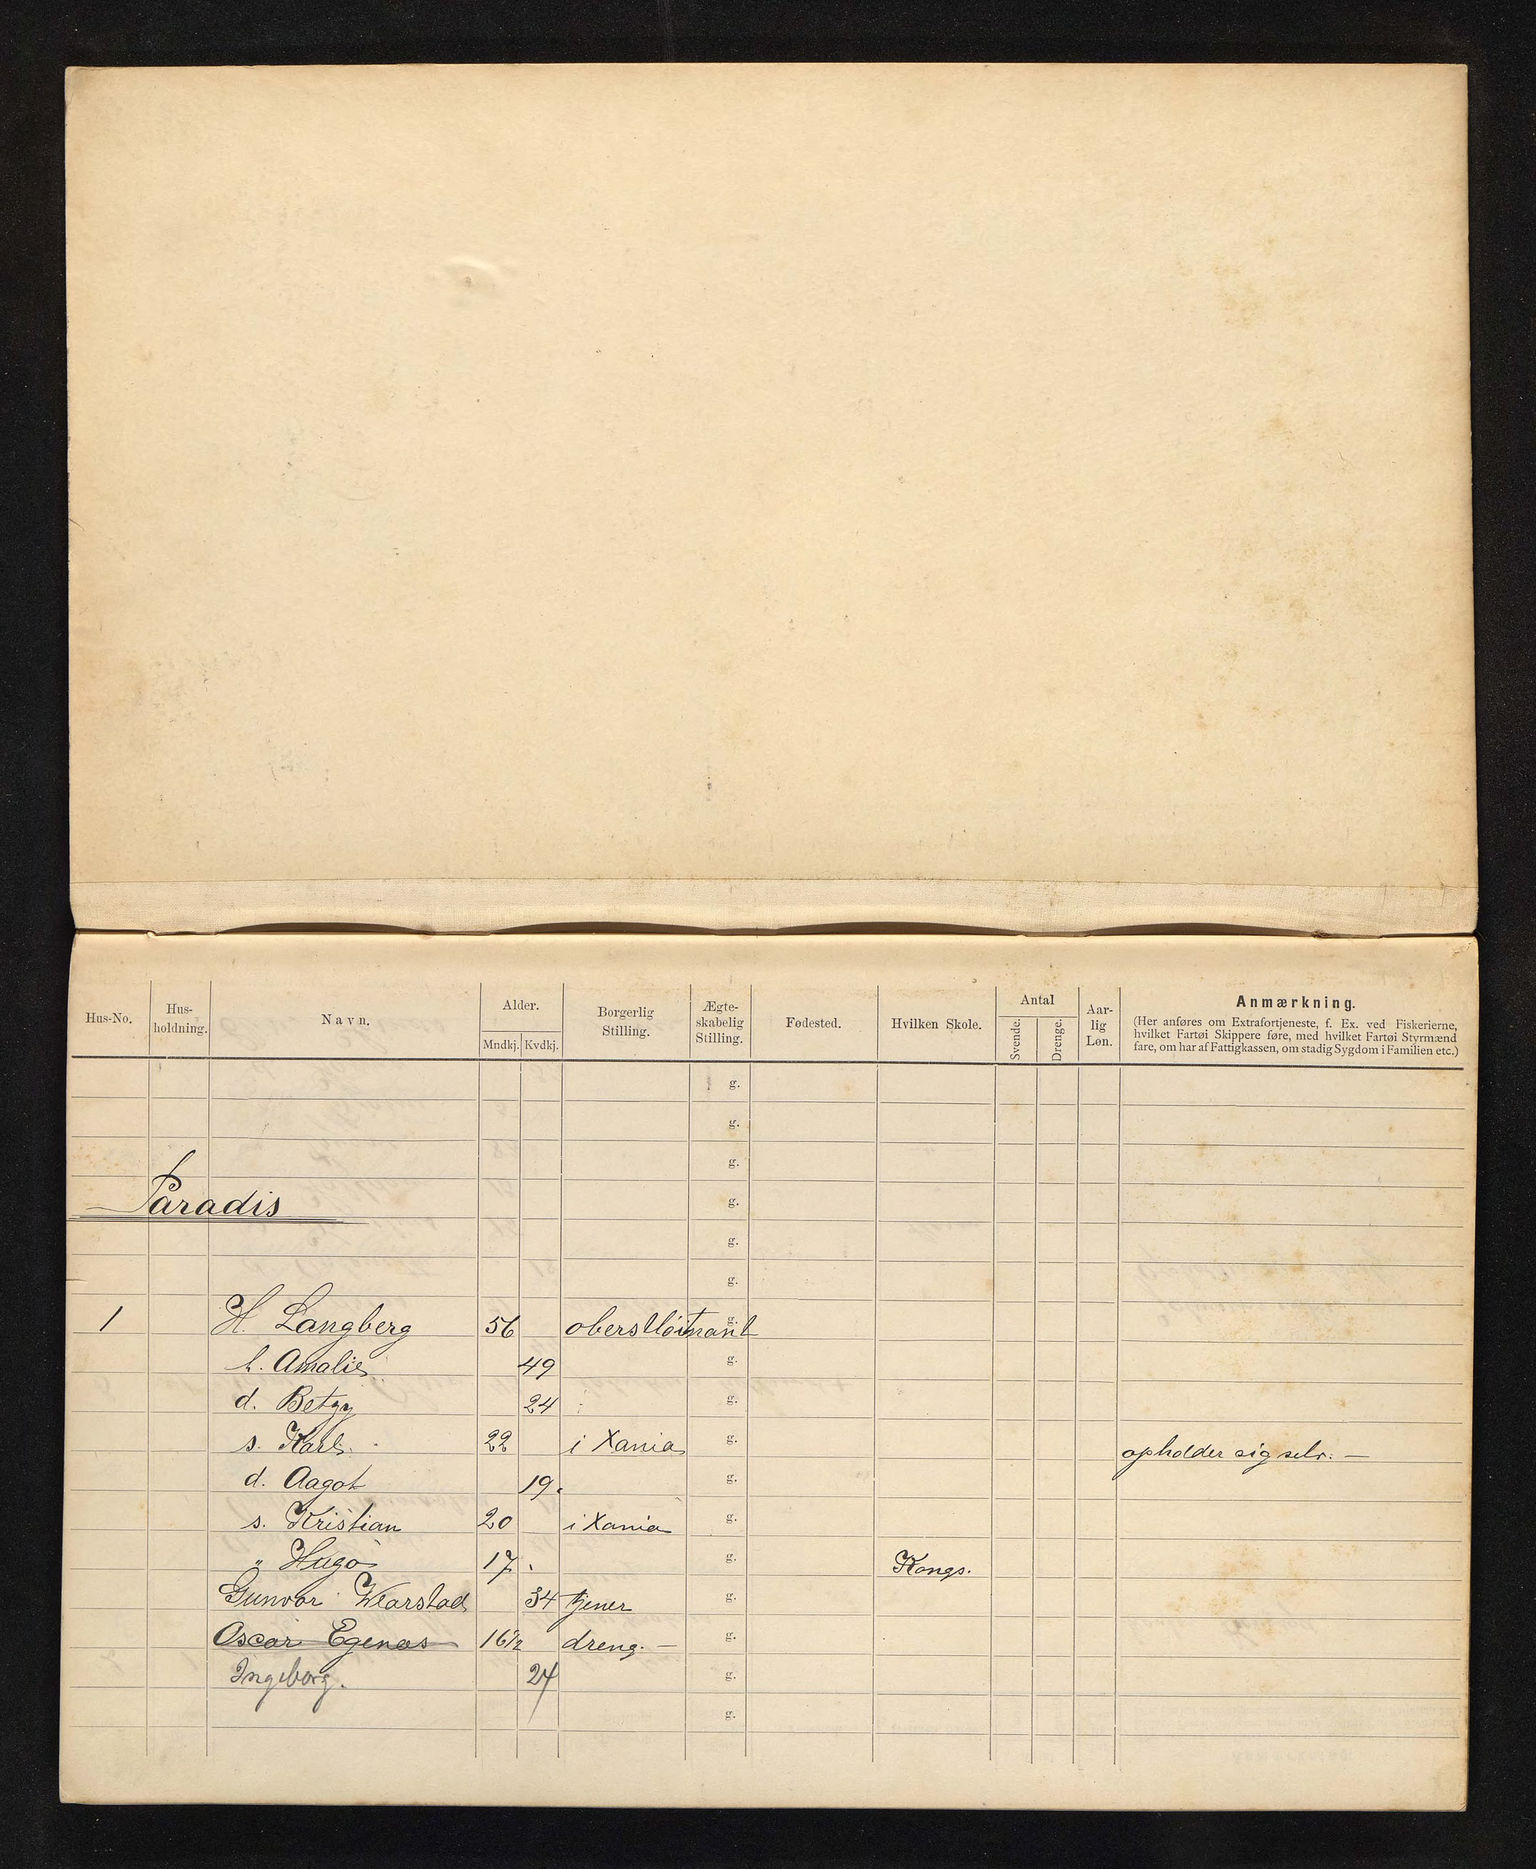 Hus-No. Hus-holdning. Navn. Alder. Mndkj. Kvdkj. Borgerlig Stilling. Ægte-skabelig Stilling. Fødested. Hvilken Skole. Antal Svende. Drenge. Aar-lig Løn. Anmærkning.
(Her anføres om Extrafortjeneste, f. Ex. ved Fiskerierne,
hvilket Fartøi Skippere føre, med hvilket Fartøi Styrmænd
fare, om har af Fattigkassen, om stadig Sygdom i Familien etc.)
g.
g.
g.
Paradis g.
g.
g.
1 H. Langberg 56 oberstløitnant g.
h. Amalie 49 g.
d. Betzy 24 g.
s. Karl. 22 i Xania g. opholder sig selv. —
d. Aagot 19. g.
s. Kristian 20 i Xania g.
" Hugo 17. g. Kongs.
Gunvor 34 tjener g.
Oscar Egenæs 16½ dreng. — g.
Ingeborg. 24 g.
g.